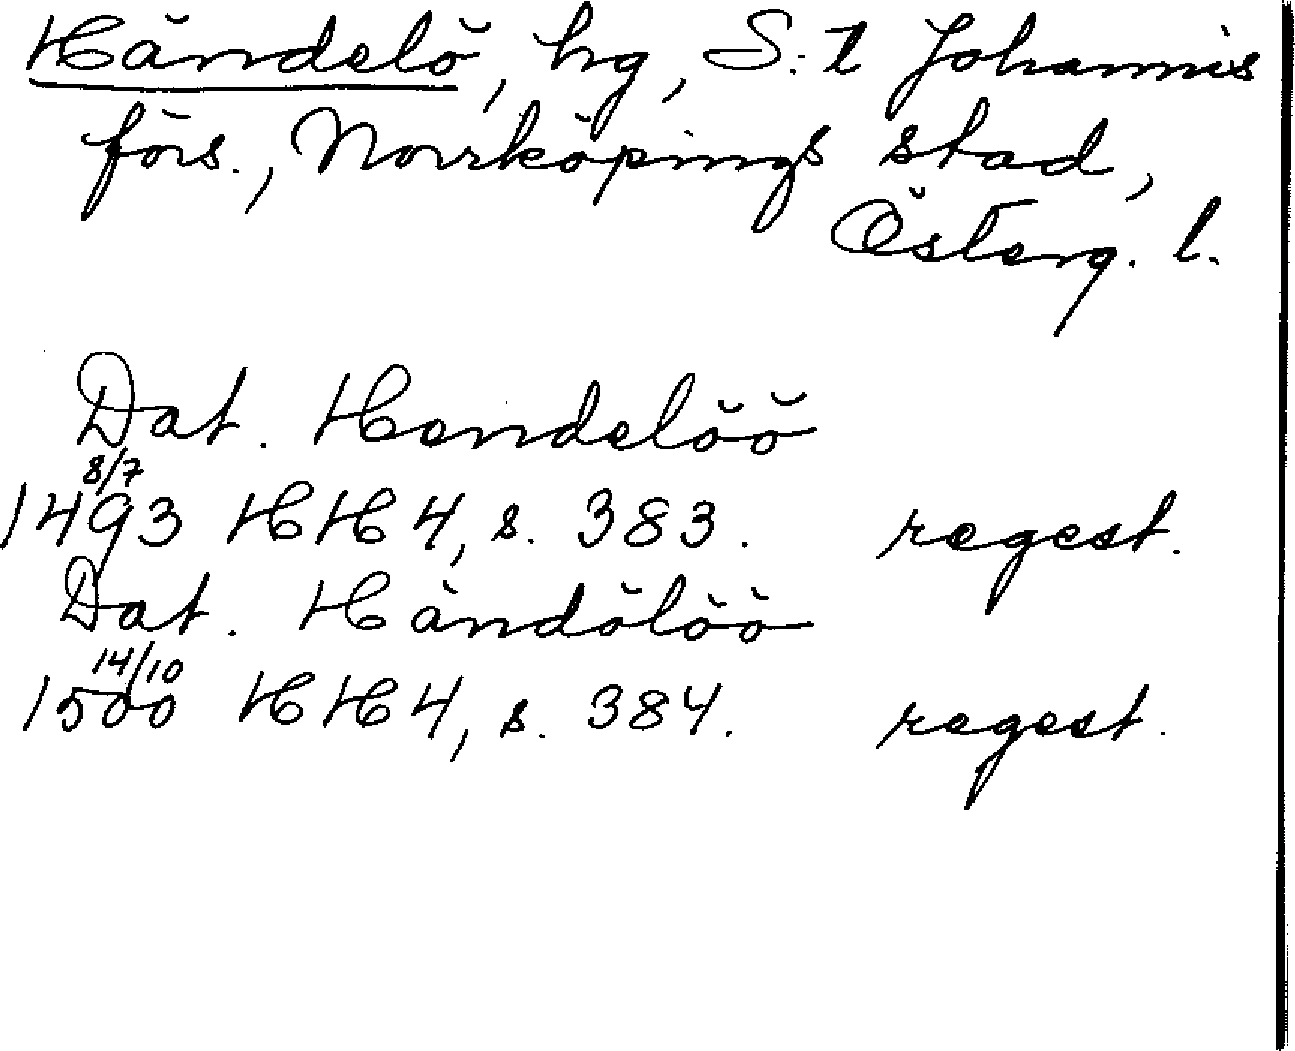 Händelö, hg, S:t Johannis
förs., Norrköpings stad,
Österg. l.
Dat. Hendelöö
8/7
1493 HH 4, s. 383. regest.
Dat. Händölöö
14/10
1500 HH 4, s. 384. regest.